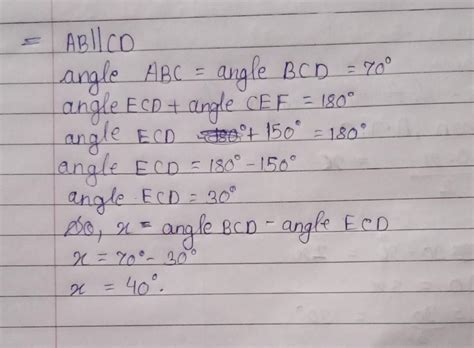 = AB||CD
angle ABC = angle BCD = 70°
angle ECD + angle CEF = 180°
angle ECD + 150° = 180°
angle ECD = 180° - 150°
angle ECD = 30°
So, x = angle BCD - angle ECD
x = 70° - 30°
x = 40°.